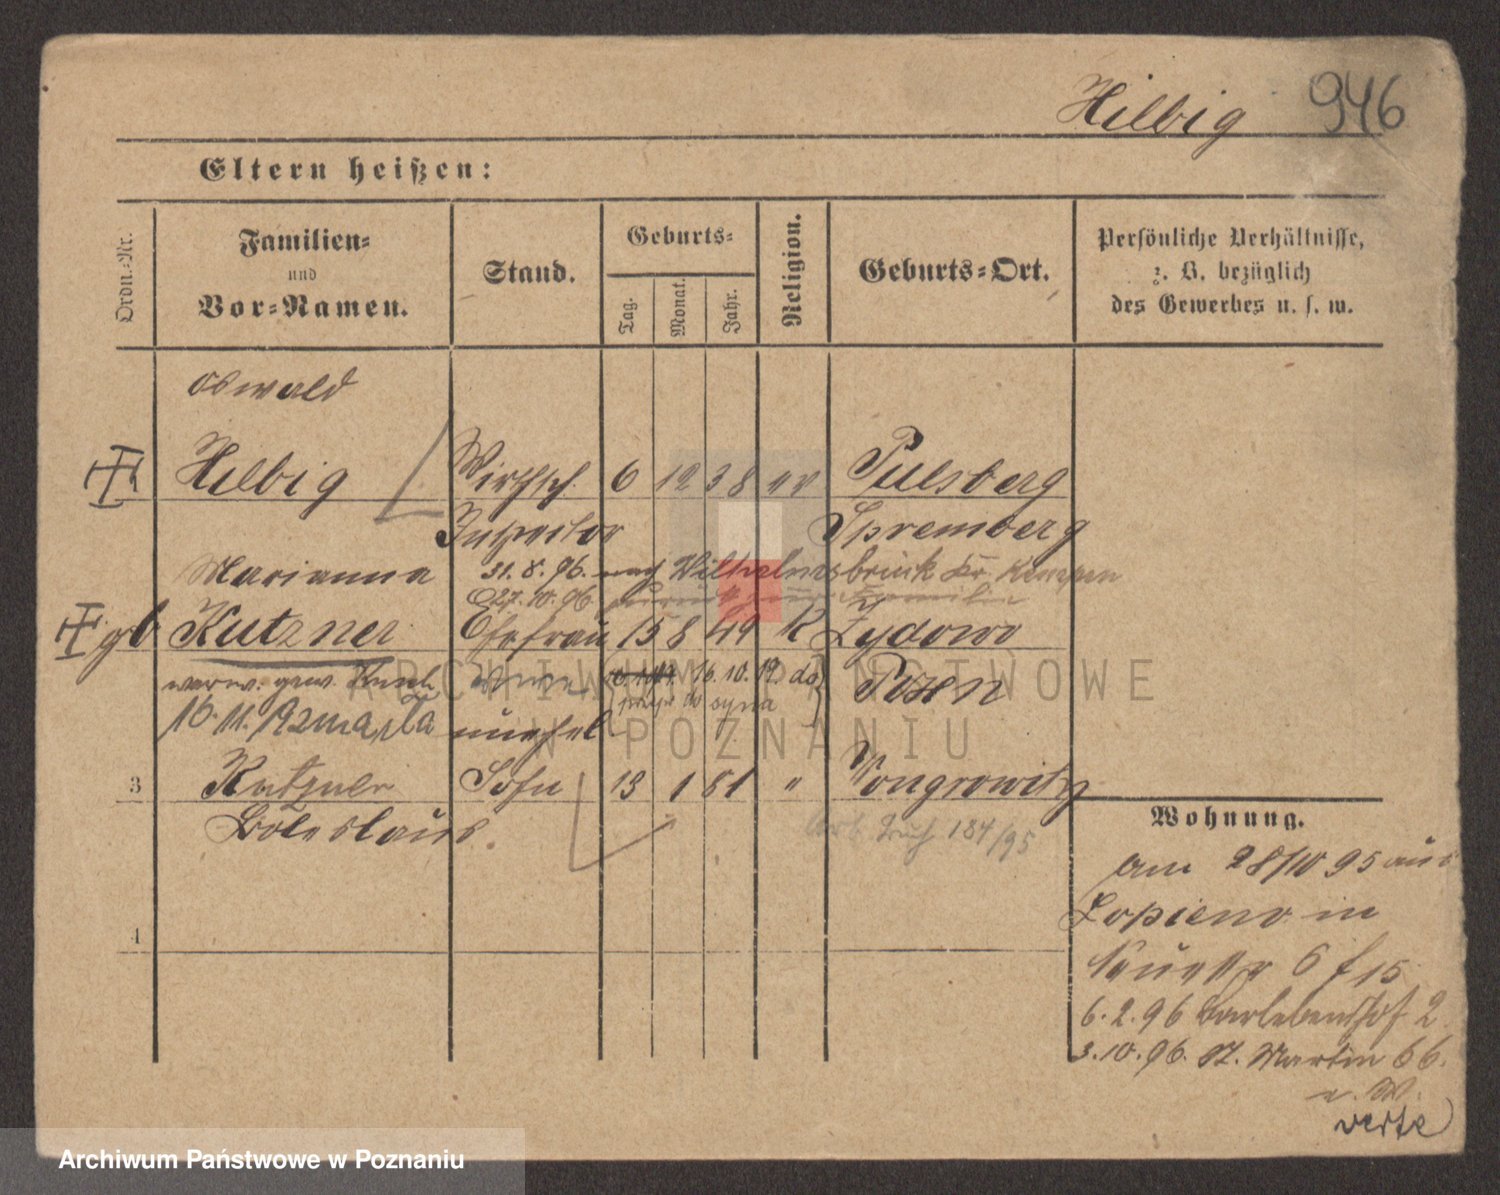 Hilbig 946
Eltern heißen:
Ordn.-Nr.
Familien-
und
Vor-Namen.
Stand.
Geburts-
Tag.
Monat.
Jahr.
Religion.
Geburts-Ort.
Persönliche Verhältnisse,
z. B. bezüglich
des Gewerbes u. s. w.
Oswald
Hilbig Wirthsch. 6 12 38 ev Pulsberg
Inspector Spremberg
Marianna 31. 8. 96. nach Wilhelmsbrück Kr. Kempen
27. 10. 96
gb Kutzner Ehefrau 15 8 49 K Zydowo
16. 10. 19. do Posen
syna
16. 11.
3 Kutzner Sohn 13 1 81 " Wongrowitz
Boleslaus
184/95
4
Wohnung.
am 28/10 95 aus
Lopieno in
6
6. 2. 96 Barlebenshof 2
3. 10. 96. St. Martin 66.
verte
ARCHIWUM PAŃSTWOWE
W POZNANIU
Archiwum Państwowe w Poznaniu